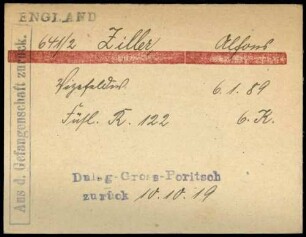 ENGLAND
644/2 Ziller Alfons
Vizefeldw. 6.1.89
Füsl. R. 122 6. K.
Dulag-Gross-Poritsch
zurück 10.10.19
Aus d. Gefangenschaft zurück.